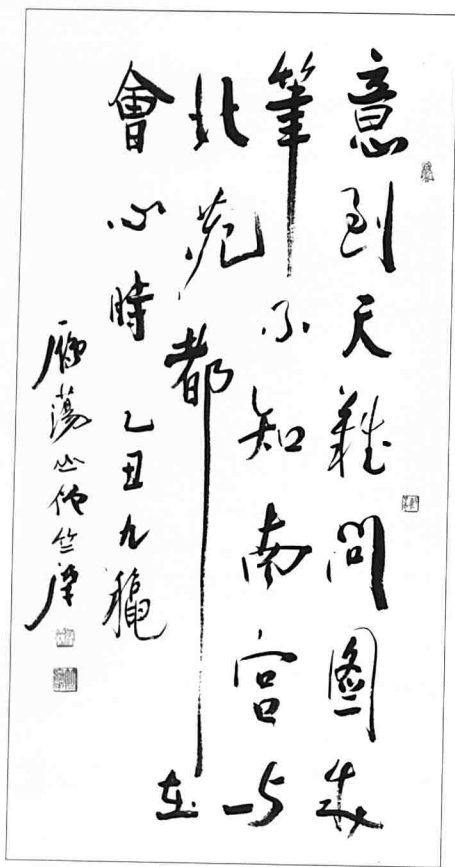 意到天難問圖成
筆不知南宮与
北苑都在
會心時 乙丑九龝
鴈蕩山僧竺摩